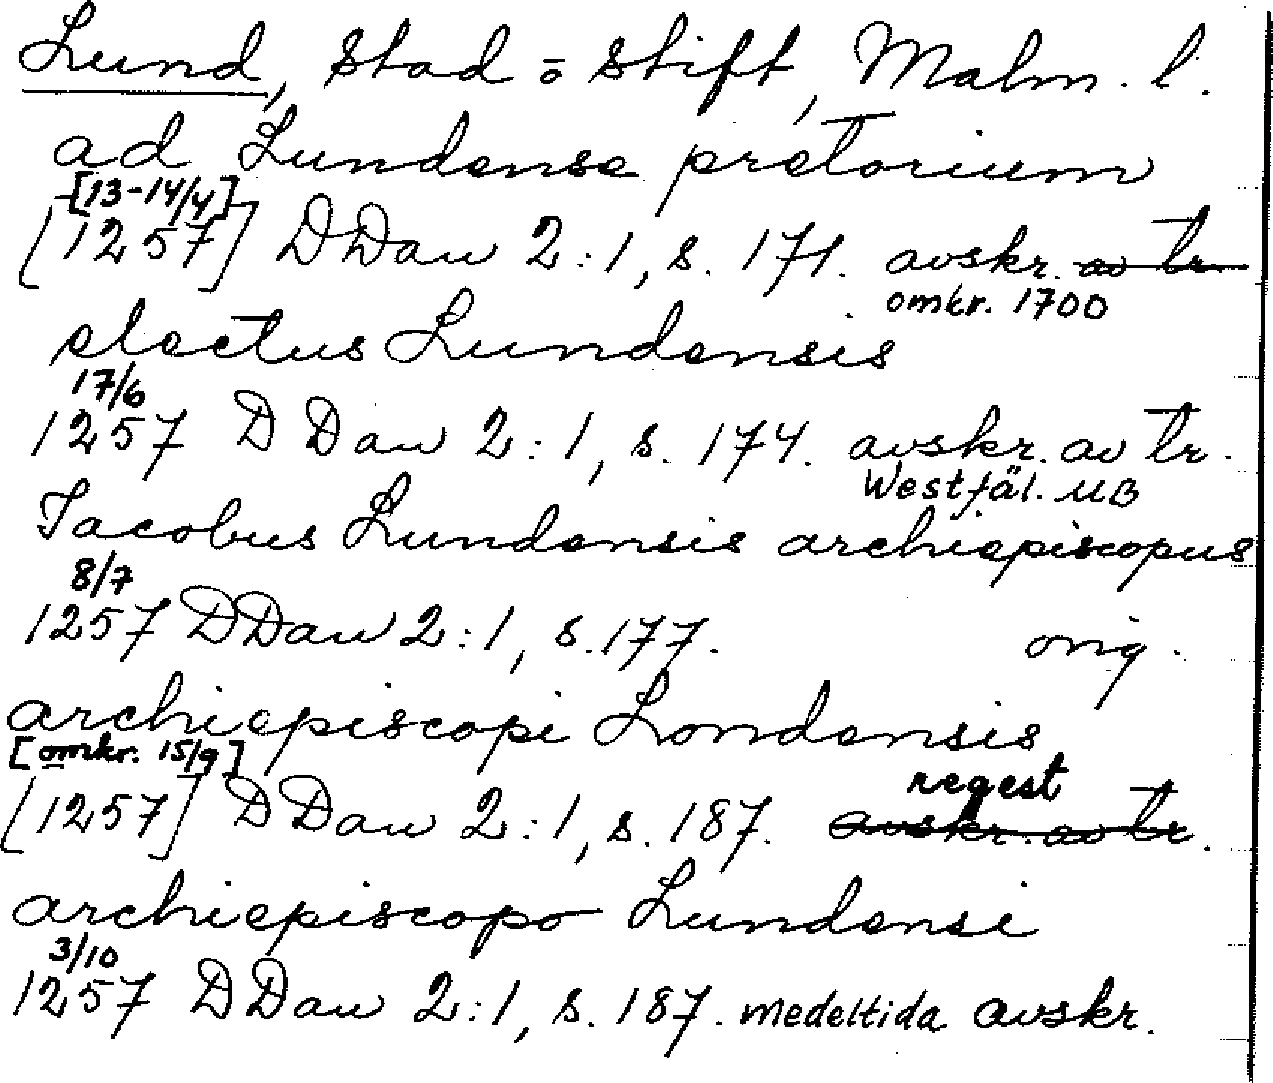 Lund, Stad o Stift, Malm. l.
ad Lundense pretorium
[13-14/4]
[1257] DDan 2:1, s. 171. avskr. av tr
omkr. 1700
electus Lundensis
17/6
1257 DDan 2:1, s. 174. avskr. av tr.
Westfäl. UB
Jacobus Lundensis archiepiscopus
8/7
1257 DDan 2:1, s. 177. orig.
archiepiscopi Londensis
[omkr. 15/9]
regest
[1257] DDan 2:1, s. 187. avskr. av tr.
archiepiscopo Lundensi
3/10
1257 DDan 2:1, s. 187. medeltida avskr.